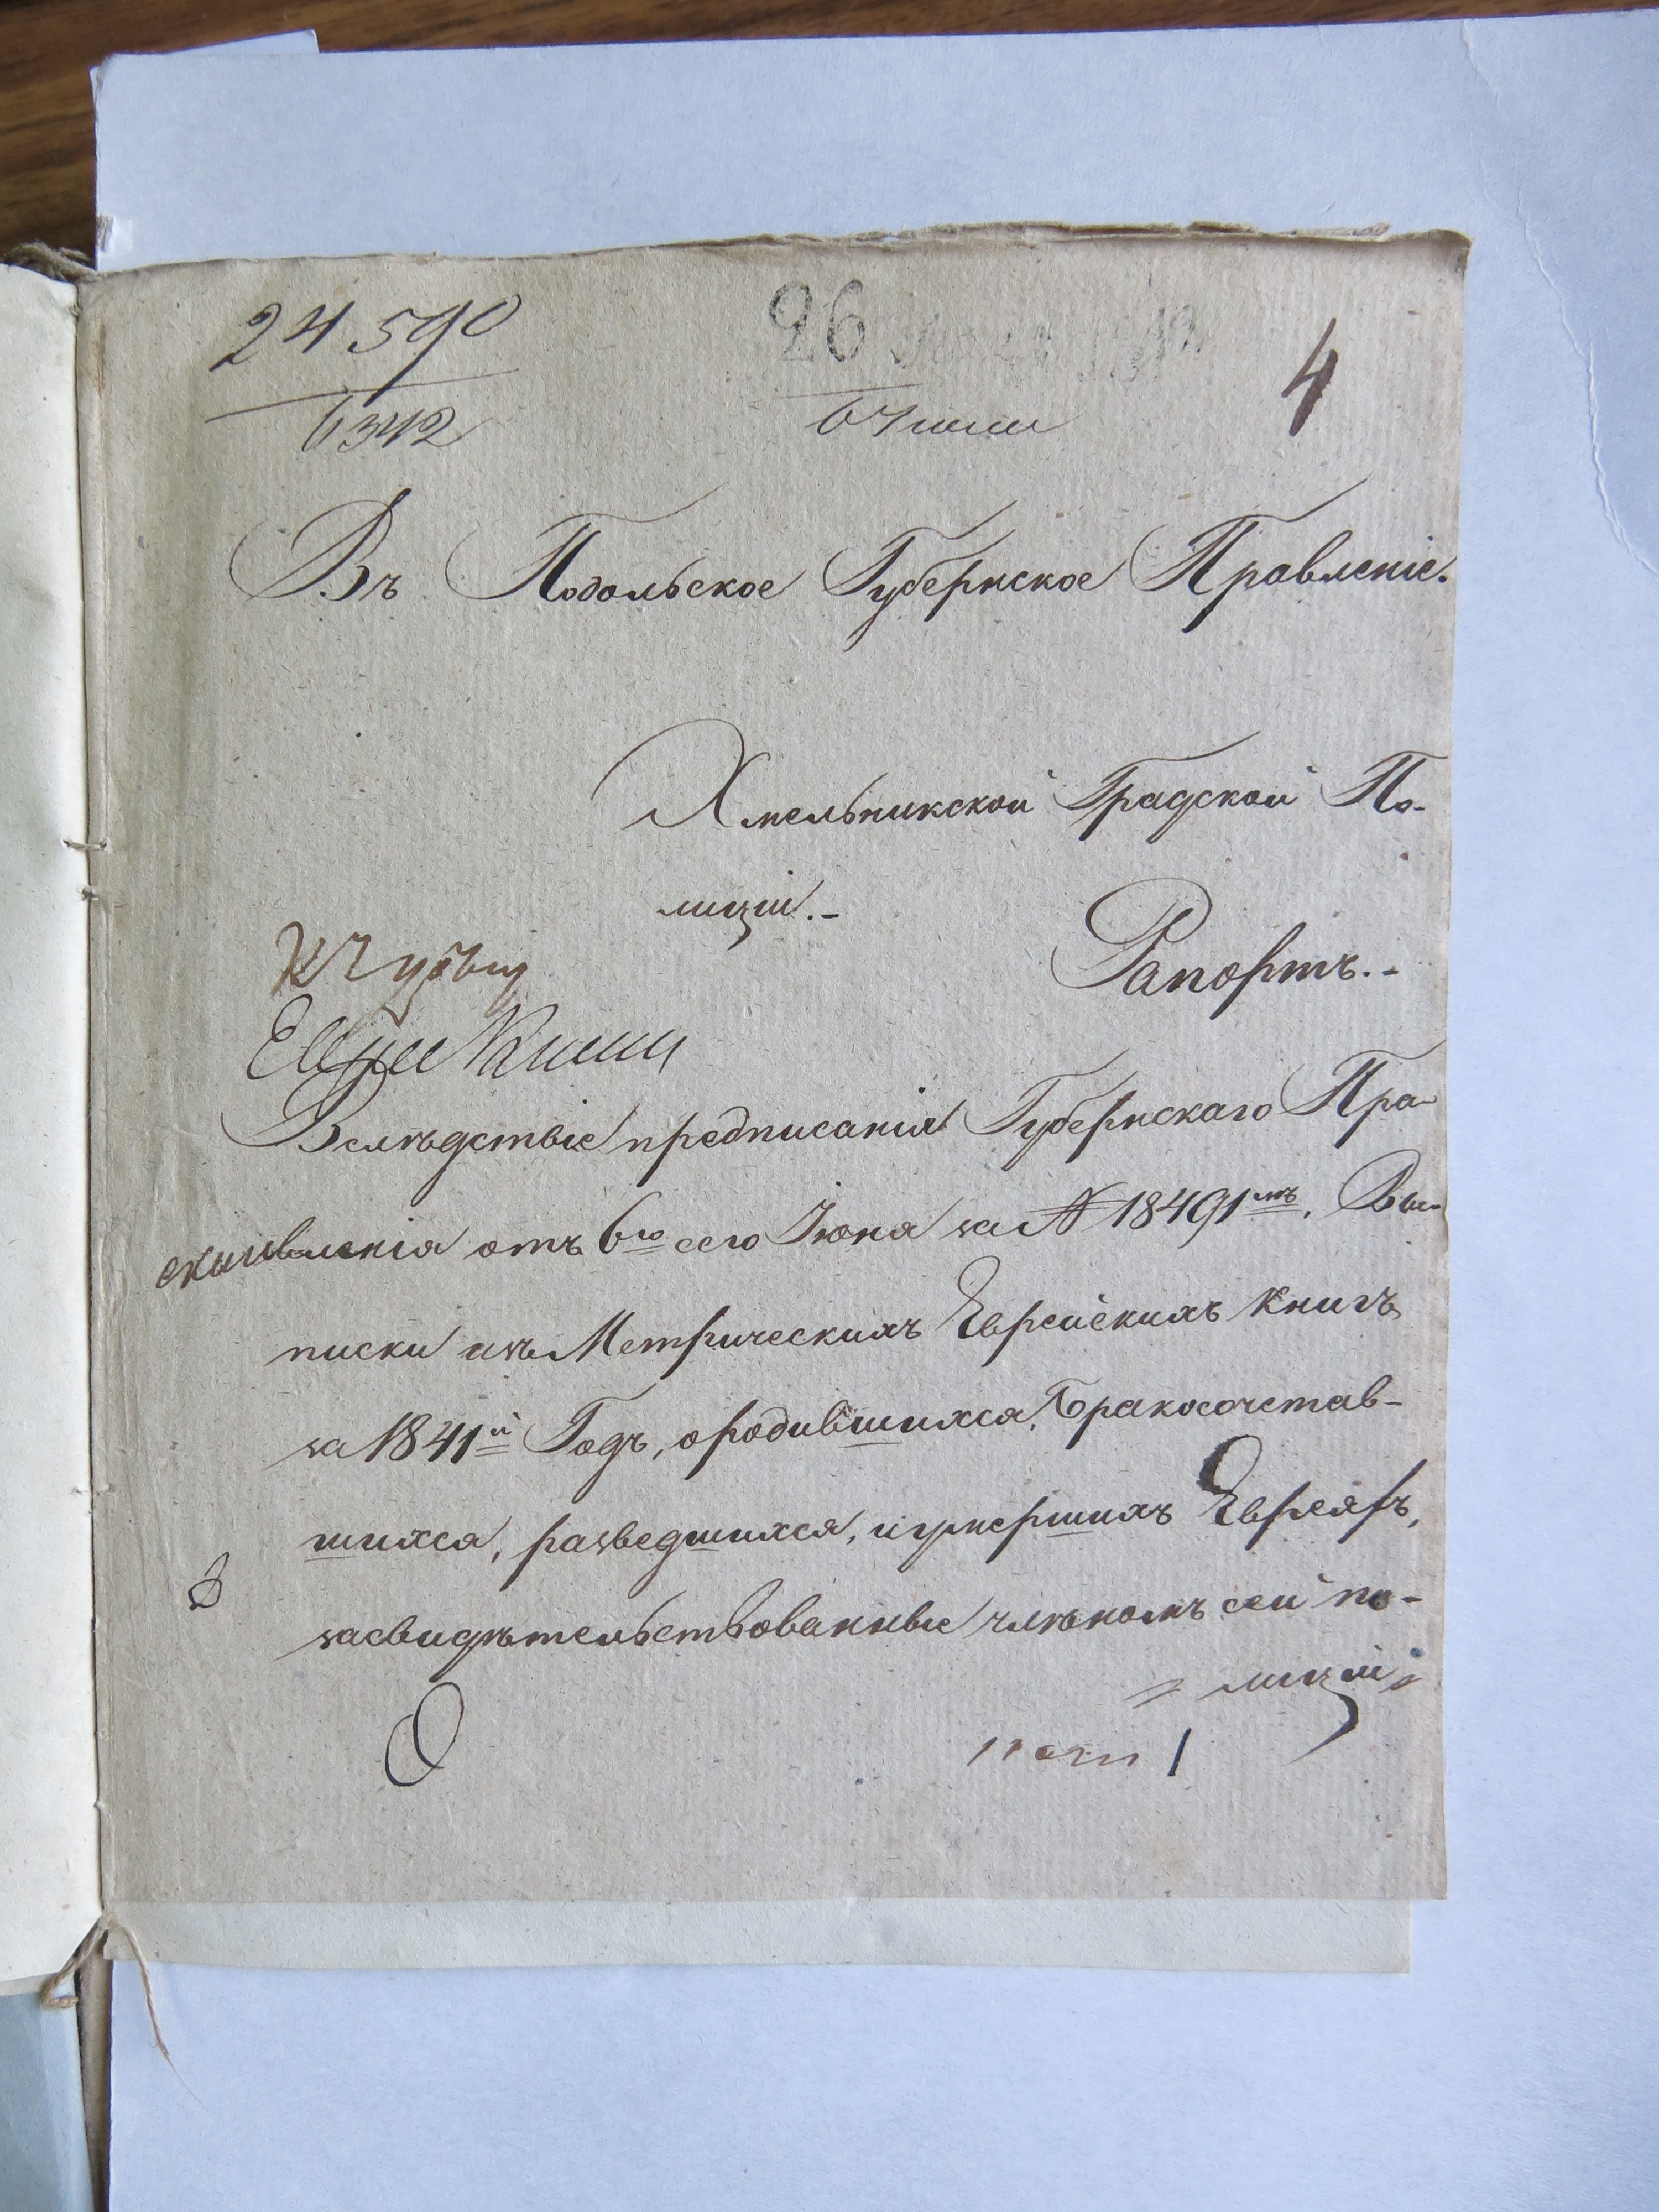 24590
6342
26
4
Въ Подольское Губернское Правленіе.
Хмельникской Градской По-
лиціи.-
Рапортъ.-
Вслѣдствіе предписанія Губернскаго Пра-
вленія отъ 6го сего Іюня за № 18491мъ, Вы-
писки изъ Метрическихъ Еврейскихъ Книгъ
за 1841й Годъ, о родившихся, бракосочетав-
шихся, разведшихся, и умершихъ Евреяхъ,
засвидѣтельствованные члѣномъ сей по-
лиціи